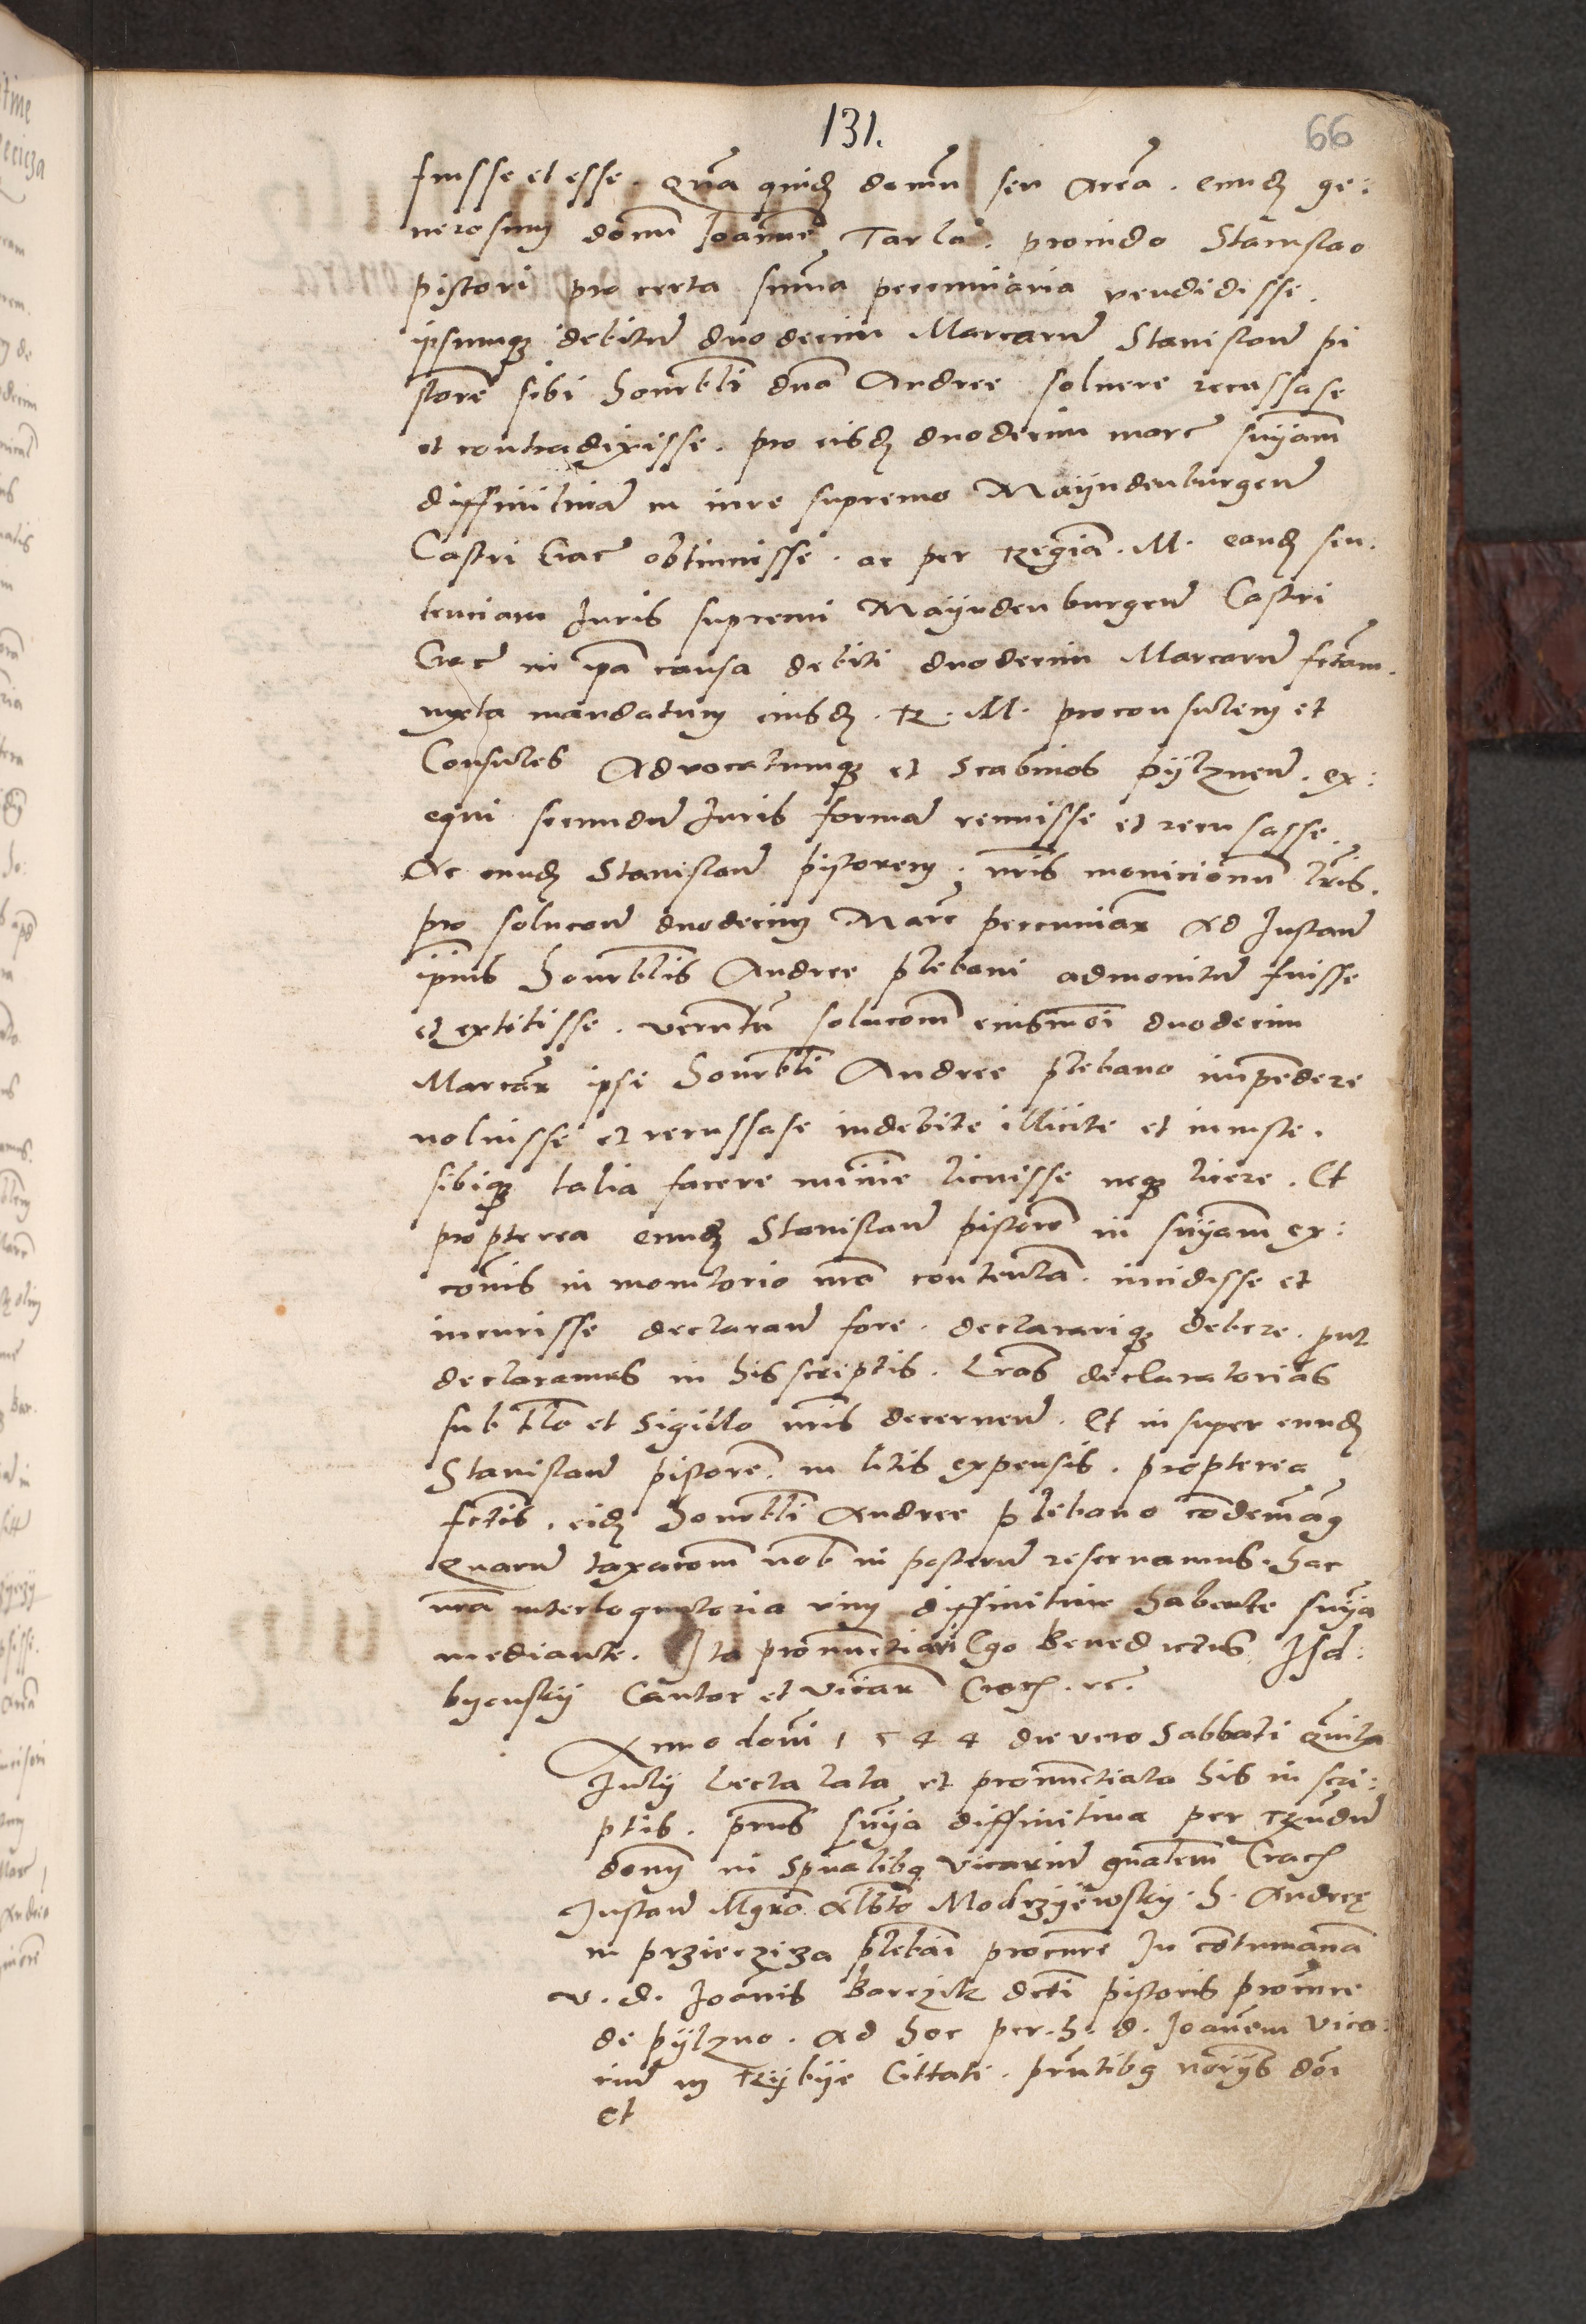 131.
66
fuisse et esse. Qua͂ quidꝫ domu͂ seu Area͂. eundꝫ ge:
nerosum donu͂ Joanne͂ Tarla͂. prouido Stanislao
pistori pro certa sum͂a pecuniaria vendidisse.
ipsumqꝫ debitu͂ duodecim Marcaru͂ Stanislau͂ pi
store͂ sibi honrbli͂ dno͂ Andree soluere recussase
et contradixisse. pro eisdꝫ duodecim marc͂ sn͂yam
diffinitiua͂ in iure supremo Mayndenburgen͂
Castri Crac͂ obtinuisse. ac per Regia͂. M. eandꝫ sen:
tenciam Juris supremi Mayndenburgen͂ Castri
Crac͂ in ip͂a causa debiti duodecim Marcaru͂ fc͂tam.
iuxta mandatum eiusdꝫ. R. M. proconsulem et
Consules Aduocatumqꝫ et Scabinos pylznen͂. ex:
equi secundu͂ Juris forma͂ renuisse et recusasse.
Ac eundꝫ Stanislau͂ pistorem. nr͂is monicionu͂ lr͂is.
pro solucon͂ duodecim Marc͂ pecuniar͂ Ad Instan͂
ip͂ius honrblis͂ Andree plebani admonitu͂ fuisse
et extitisse. verunt͂ solucom͂ eiusmo͂i duodecim
Marcar͂ ipsi honrbli͂ Andree plebano impe͂dere
noluisse et recussase indebite illicite et iniuste.
sibiqꝫ talia facere minime͂ licuisse neqꝫ licere. Et
propterea eundꝫ Stanislau͂ pistore͂ in sn͂yam ex:
com͂is in monitorio nr͂o contenta͂. incidisse et
incurisse declaran͂ fore. declarariqꝫ debere. put͂
declaramus in his scriptis. Lr͂as declaratorias
sub tl͂o et Sigillo nr͂is decernen͂. Et insuper eundꝫ
Stanislau͂ pistore͂. in litis expensis. propterea
fc͂tis. eidꝫ honrbli͂ Andree plebano co͂demn͂ag
Quaru͂ taxacom͂ nob͂ in posteru͂ reseruamus. hac
nr͂a interloqutoria vim diffinitiue habente sn͂ya
mediante. Ita pronunctiaui Ego Benedictus Isd:
byenskij Cantor et vicar͂ Cracꝫ. rc͂.
Anno dom͂i 1544 die vero Sabbati Qui͂ta
July Lecta lata et pronunctiata his in scri:
ptis. pn͂s sn͂ya diffinitiua per Rn͂du͂
donm͂ in sp͂ualibꝫ vicariu͂ gn͂alem Cracꝫ
Instan͂ Mgr͂o Alb͂to Modrzyewskij. h. Andreę
in przieczicza pleba͂i procur͂e In contumatia͂
v. d. Joan͂is Barczik dc͂ti pistoris procur͂e
de pylzno. Ad hoc per. h. d. Joan͂em Vica:
riu͂ in Rybye Cittati. pn͂tibꝫ nor͂ys do͂i
et